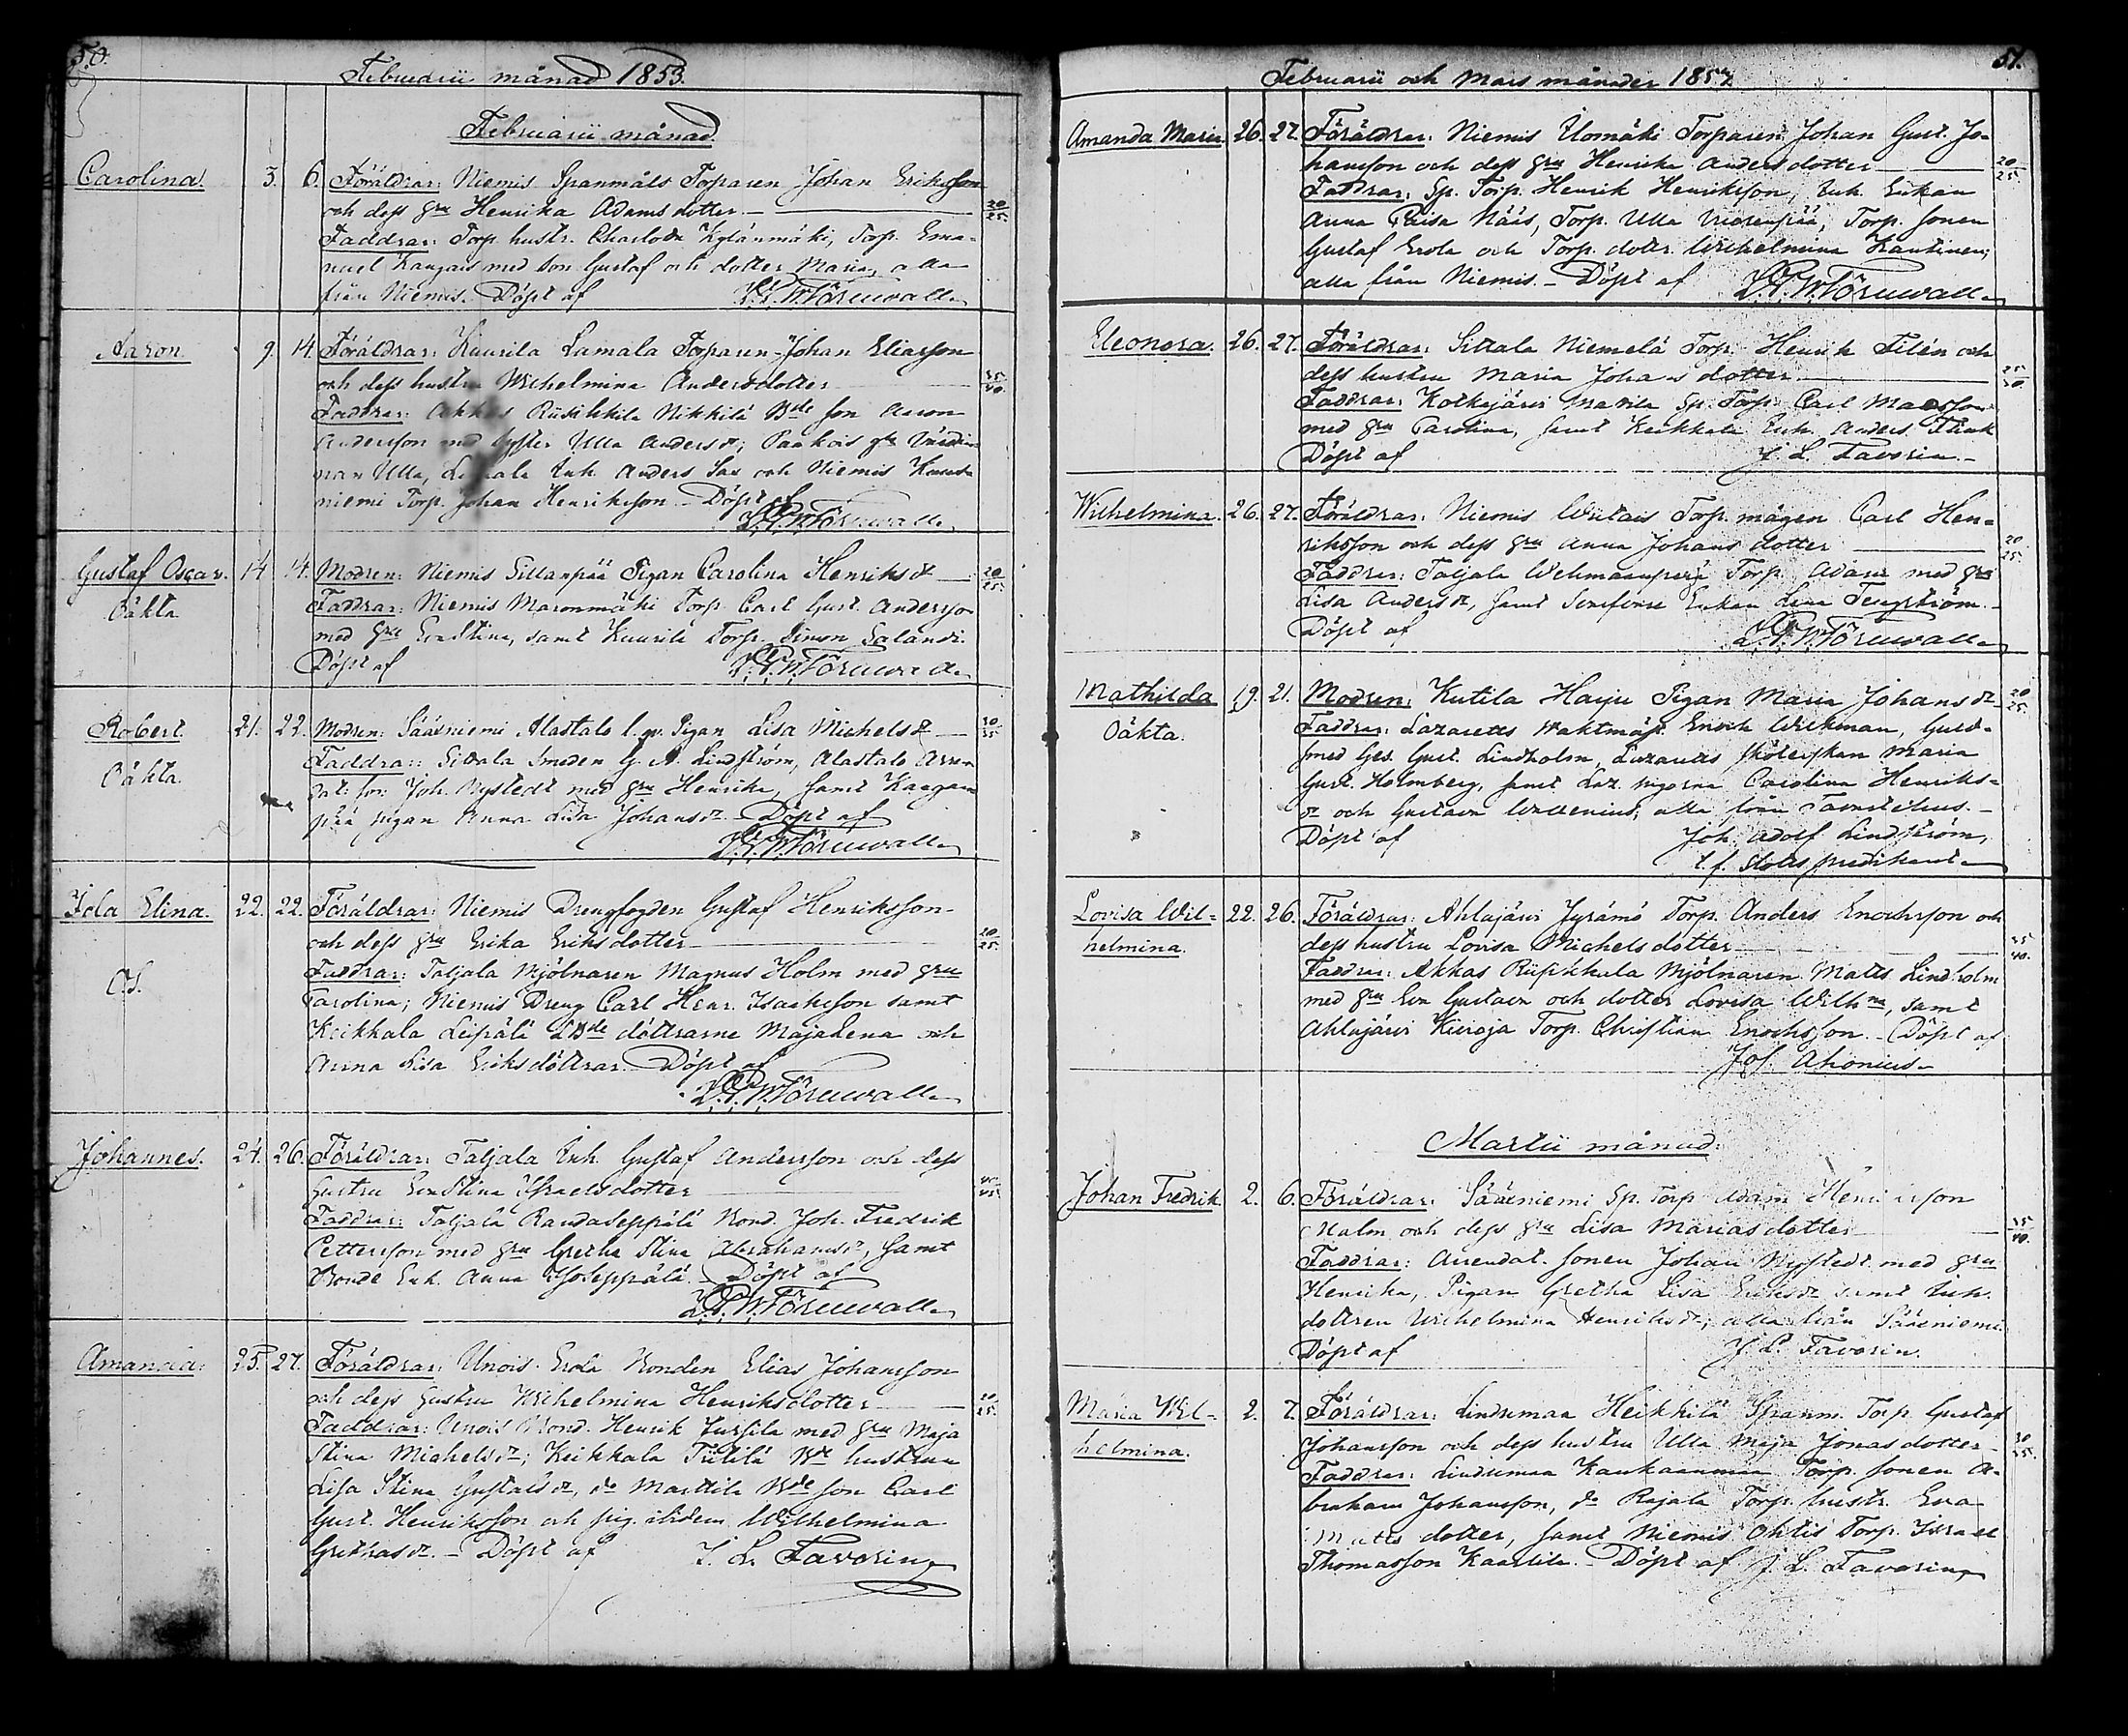 50.
Februarii månad 1853.
Februarii månad.
Carolina. 3. 6. Föräldrar: Niemis Spanmåls Torparen Johan Eriksson
och dess hru Henrika Adamsdotter 20/25.
Faddrar: Torp. hustr. Charlotta Kylänmäki, Torp. Ema-
nuel Kangais med son Gustaf och dotter Maria, alla
från Niemis. Döpt af Törnwall
Aaron 9. 14. Föräldrar: Kuurila Lamala Torparen Johan Eliasson
och dess hustru Wilhelmina Andersdotter 35/40.
Faddrar: Akkas Nikkilä Bde son Aaron
Andersson med syster Ulla Andersdr;
Ulla, Inh. Anders Sax och Niemis
niemi Torp. Johan Henriksson. Döpt af
Törnwall
Gustaf Oscar. 14 14. Modren: Niemis Sillanpää Pigan Carolina Henriksdr 20/25.
Oäkta. Faddrar: Niemis Maronmäki Torp. Carl Gust. Andersson
med hru Eva Stina, samt Kuurila Torp. Simon Salandr.
Döpt af Törnwall
Robert 21. 22. Modren: Sääxniemi Alastalo Pigan Lisa Michelsdr 30/35
Oäkta. Faddrar: Sittala Smeden G. A. Lindström, Alastalo Arren-
dat. son Joh. Nystedt med hru Henrika, samt Kangan-
pää pigan Anna Lisa Johansdr. Döpt af
Törnwall
Ida Elina. 22. 22. Föräldrar: Niemis Drengfogden Gustaf Henriksson
och dess hru Erika Eriksdotter 20/25.
Faddrar: Taljala Mjölnaren Magnus Holm med hru
Carolina; Niemis Dreng Carl Henr. Isaksson samt
Keikkala Leipälä Bde döttrarne Maja Lena och
Anna Lisa Eriksdöttrar. Döpt af
Törnwall
Johannes. 24. 26. Föräldrar: Taljala Inh. Gustaf Andersson och dess
hustru Eva Stina Israelsdotter 40/45.
Faddrar: Taljala RandaSeppälä Bond. Joh. Fredrik
Pettersson med hru Gretha Stina Abrahamsdr, samt
Bonde Enk. Anna IsoSeppälä. Döpt af
Törnwall
Amanda. 25. 27. Föräldrar: Unois Erola Bonden Elias Johansson
och dess hustru Wilhelmina Henriksdotter 20/25.
Faddrar: Unois Bond. Henrik Jussila med hru Maja
Stina Michelsdr; Keikkala Bde hustrun
Lisa Stina Gustafsdr, do Marttila Bde son Carl
Gust. Henriksson och pig. ibidem Wilhelmina
Grethasdr. Döpt af J. L. Favorin
51.
Februarii och Mars månader 1853.
Amanda Maria. 26. 27. Föräldrar: Niemis Uomäki Torparen Johan Gust. Jo-
hansson och dess hru Henrika Andersdotter 20/25.
Faddrar: Sp. Torp. Henrik Henriksson, Inh. Enkan
Anna Caisa Näis, Torp. Ulla Torp. sonen
Gustaf Erola och Torp. dottr. Wilhelmina Kantinen;
alla från Niemis. Döpt af Törnwall
Eleonora. 26. 27. Föräldrar: Sittala Niemelä Torp. Henrik Filén och
dess hustru Maria Johansdotter 25/30.
Faddrar: Kotkajärvi Mattila Sp. Torp. Carl Mattsson
med hru Carolina, samt Keikkala Enk. Anders
Döpt af J. L. Favorin.
Wilhelmina. 26. 27. Föräldrar: Niemis Torp. mågen Carl Hen-
riksson och dess hru Anna Johansdotter 20/25.
Faddrar: Taljala Torp. Adam med hru
Lisa Andersdr, samt Enkan Lena Tengström.
Döpt af Törnwall
Mathilda 19. 21. Modren: Kutila Harju Pigan Maria Johansdr 20/25.
Oäkta. Faddrar: Lazaretts Waktmäst. Enoch Wickman, Guld-
smed Ges. Gust. Lindholm, Lazaretts sköterskan Maria
Gust. Holmberg, samt Laz. pigorna Carolina Henriks-
dr och Gustava Wallenius; alla från Tavastehus.
Döpt af Joh. Adolf Lindström,
t.f. Slottspredikant
Lovisa Wil- 22. 26. Föräldrar: Ahlajärvi Jyrämö Torp. Anders Enochsson och
helmina. dess hustru Lovisa Michelsdotter 35/40.
Faddrar: Akkas Mjölnaren Matts Lindholm
med hru Eva Gustava och dotter Lovisa Wilhna, samt
Ahlajärvi Torp. Christian Enochsson. Döpt af
Jos. Ahonius
Martii månad.
Johan Fredrik 2. 6. Föräldrar: Sääxniemi Sp. Torp Adam Henriksson
Malm och dess hru Lisa Mariasdotter 35/40.
Faddrar: Arrendat. sonen Johan Nystedt med hru
Henrika, Pigan Gretha Lisa Eriksdr samt Inh.
dottren Wilhelmina Henriksdr; alla från Sääxniemi.
Döpt af J. L. Favorin.
Maria Wil- 2. 7. Föräldrar: Lintumaa Heikkilä Spanm. Torp. Gustaf
helmina. Johansson och dess hustru Ulla Maja Jonasdotter 30/35.
Faddrar: Lintumaa Kaukaanmaa Torp. sonen A-
braham Johansson, do Rajala Torp. hustr. Eva
Mattsdotter, samt Niemis Ohtis Torp. Israel
Thomasson Kaartila. Döpt af J. L. Favorin